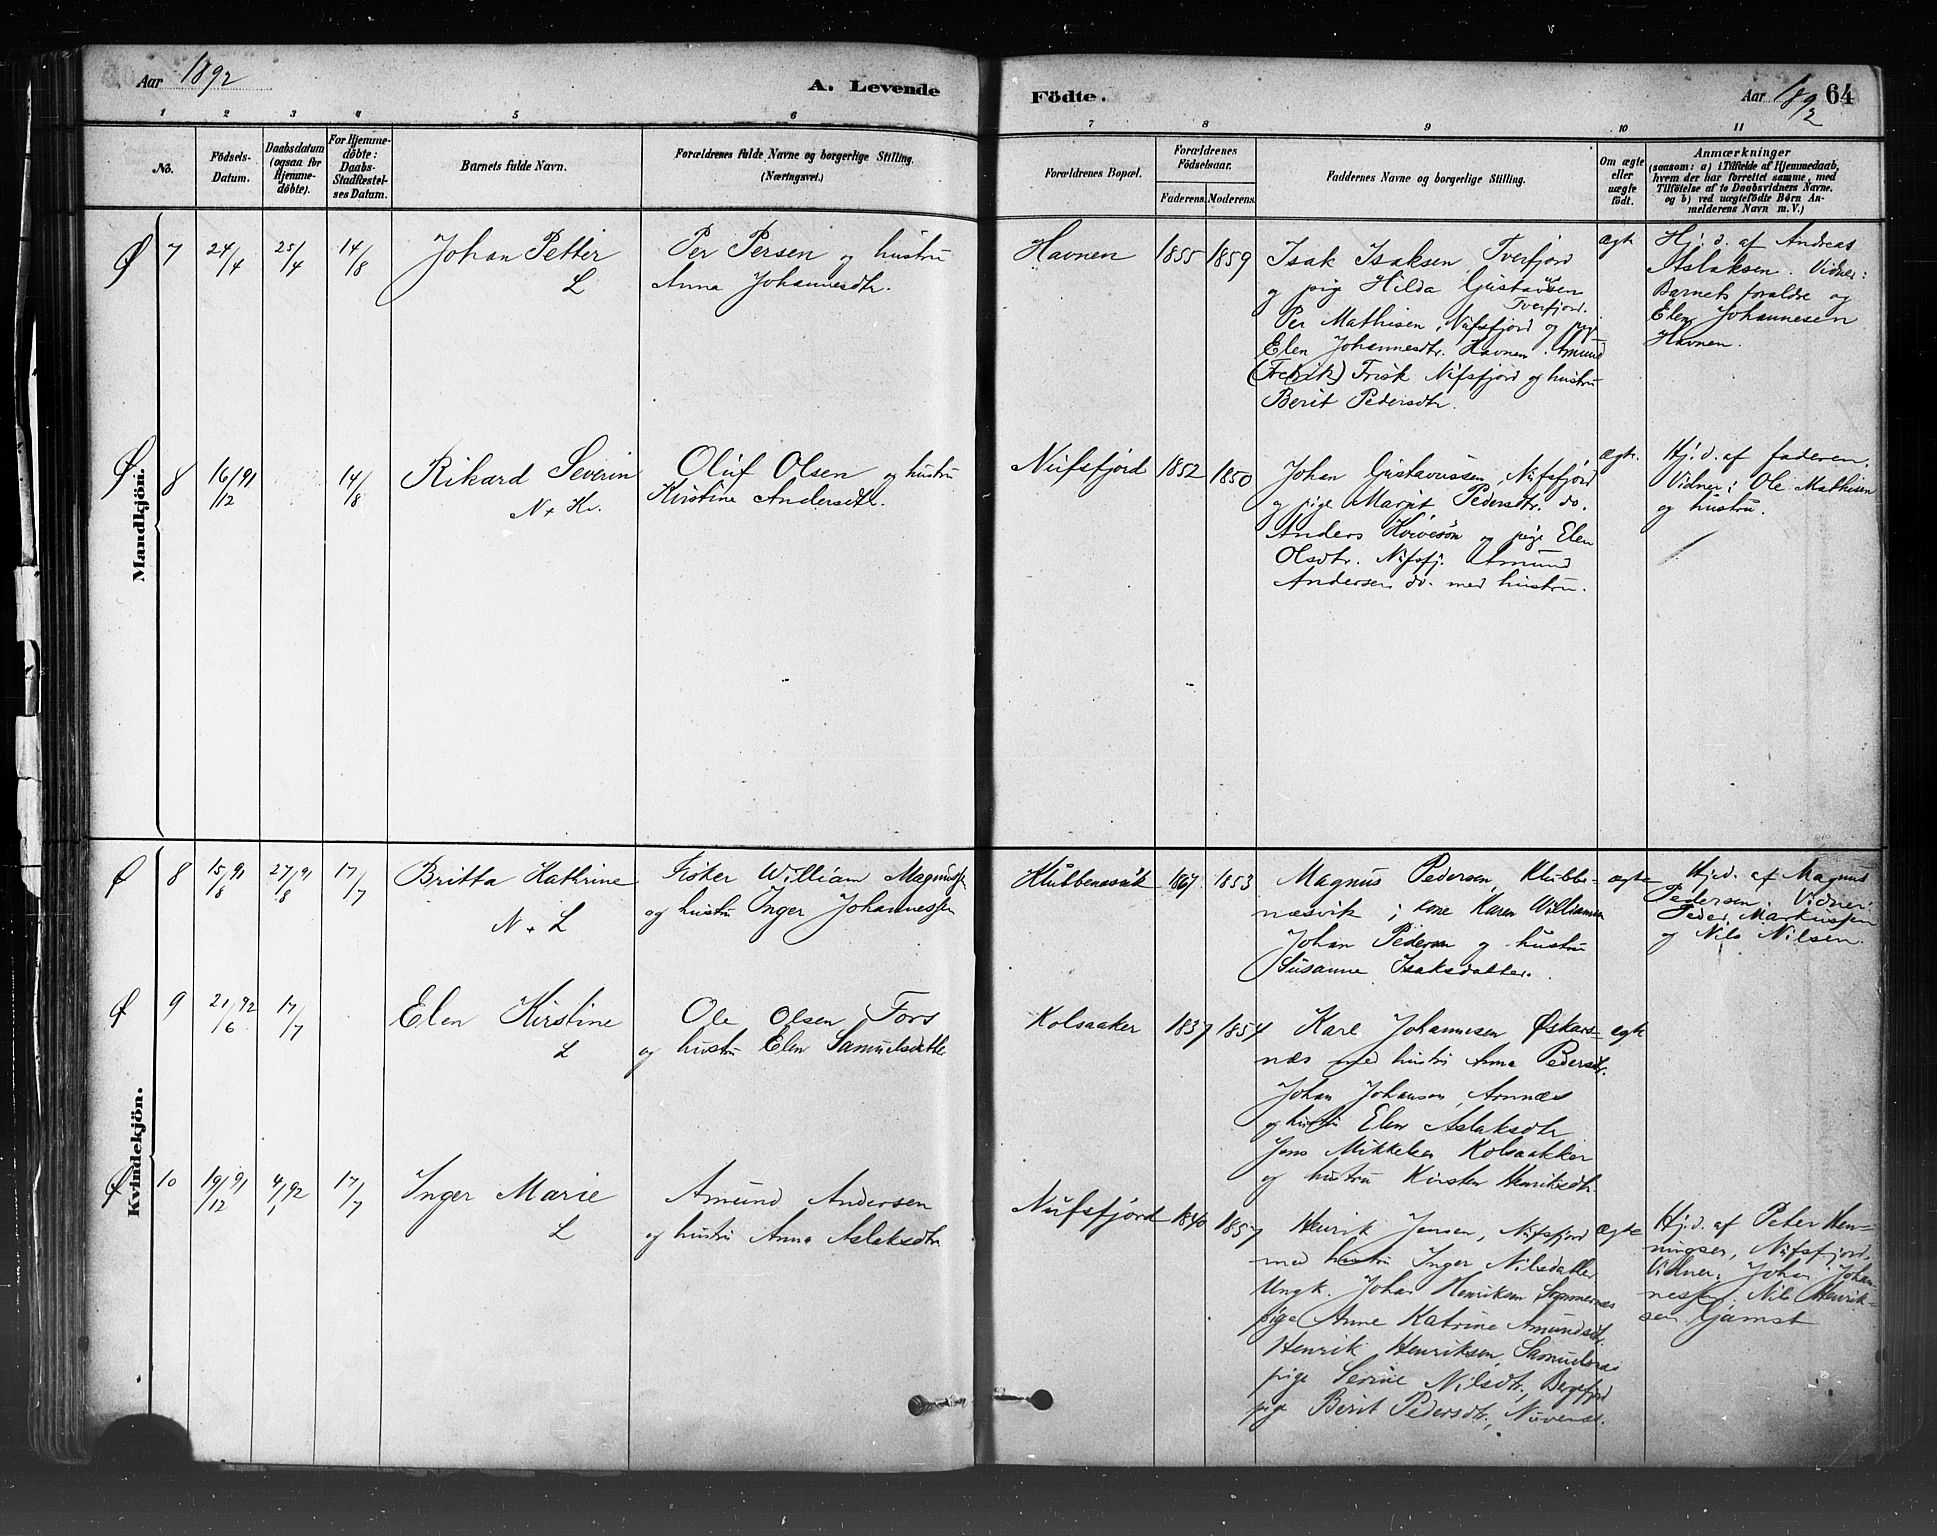 Aar 1892
A. Levende
Födte.
Aar 1892
64
1 2 3 4 5 6
7 8 9 10 11
No.
Födsels-
Datum.
Daabsdatum
(ogsaa for
Hjemme-
döbte).
For Hjemme-
döbte:
Daabs-
Stadfæstel-
ses Datum.
Barnets fulde Navn.
Forældrenes fulde Navne og borgerlige Stilling.
(Næringsvei.)
Forældrenes Bopæl.
Forældrenes
Födselsaar.
Faderens. Moderens.
Faddernes Navne og borgerlige Stilling.
Om ægte
eller
uægte
födt.
Anmærkninger
(saasom: a) i Tilfælde af Hjemmedaab,
hvem der har forrettet samme, med
Tilföielse af to Daabsvidners Navne.
og b) ved uægtefödte Börn An-
melderens Navn m. V.)
Mandkjön.
Ø 7 24/4 25/4 14/8
Johan Petter
L
Per Persen og hustru
Anna Johannesdtr.
Havnen 1855 1859
Isak Isaksen Tverfjord
og pige Hilda Gustavsen
Tverfjord.
Per Mathisen, Nufsfjord og pige
Elen Johannesdtr. Havnen. Amund
(Fredrik) Frisk Nufsfjord og hustru
Berit Pedersdtr.
ægte
Hj. d. af Andreas
Aslaksen. Vidner:
Barnets foraldre og
Elen Johannesen
Havnen.
Ø 8 16/12 91 14/8
Rikard Severin
N + Kv.
Oluf Olsen og hustru
Kirstine Andersdtr.
Nufsfjord 1852 1850
Johan Gustavussen, Nufsfjord
og pige Margit Pedersdtr. do.
Anders og pige Elen
Olsdtr. Nufsfj. Amund
Andersen do. med hustru.
ægte.
Hj. d. af faderen.
Vidner: Ole Mathisen
og hustru.
Kvindekjön.
Ø 8 15/8 91 27/8 91 17/7
Britta Kathrine
N + L
Fisker William Magnussen
og hustru Inger Johannessen
Klubbenæsvik 1867 1853
Magnus Pedersen, Klubbe-
næsvik; kone Karen Williamsen
Johan Pedersen og hustru
Susanne Isaksdatter.
ægte
Hjd. af Magnus
Pedersen. Vidner:
Peder Markussen
og Nils Nilsen.
Ø 9 21/6 92 17/7
Elen Kirstine
L
Ole Olsen Fors
og hustru Elen Samuelsdatter
Kolsaaker 1837 1854
Karl Johannesen Øskars-
næs med hustru Anna Pedersdtr.
Johan Johansen, Arnnæs
og hustru Elen Aslaksdtr
Jens Mikkelsen Kolsaakker
og hustru Kirsten Henriksdtr.
ægte
Ø 10 19/12 91 4/1 92 17/7
Inger Marie
L
Amund Andersen
og hustru Anna Aslaksdtr.
Nufsfjord 1840 1857
Henrik Jensen, Nufsfjord
med hustru Inger Nilsdatter
Ungk. Johan Henriksen
pige Anne Katrine Amundsdtr.
Henrik Henriksen,
pige Serine Nilsdtr., Bergsfjord
pige Berit Pedersdtr.,
ægte
Hj. d. af Peter Hen-
ningsen, Nufsfjord.
Vidner: Johan Johan-
nessen. Nils Henrik-
sen Gamst